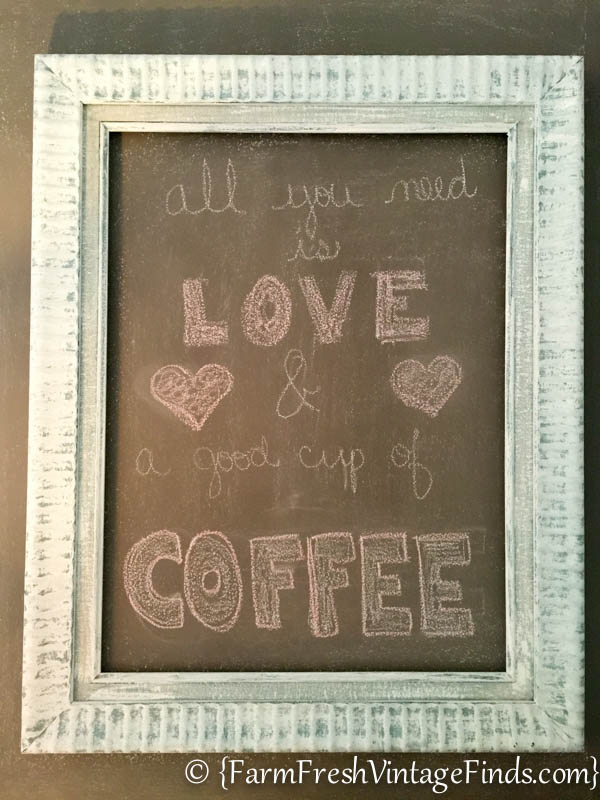 all you need
is
LOVE
&
a good cup of
COFFEE
© {FarmFreshVintageFinds.com}